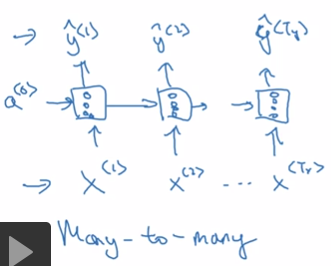 → ŷ^(1) ŷ^(2) ŷ^(Ty)
a^(0)
→ X^(1) X^(2) ... X^(Tx)
Many-to-many